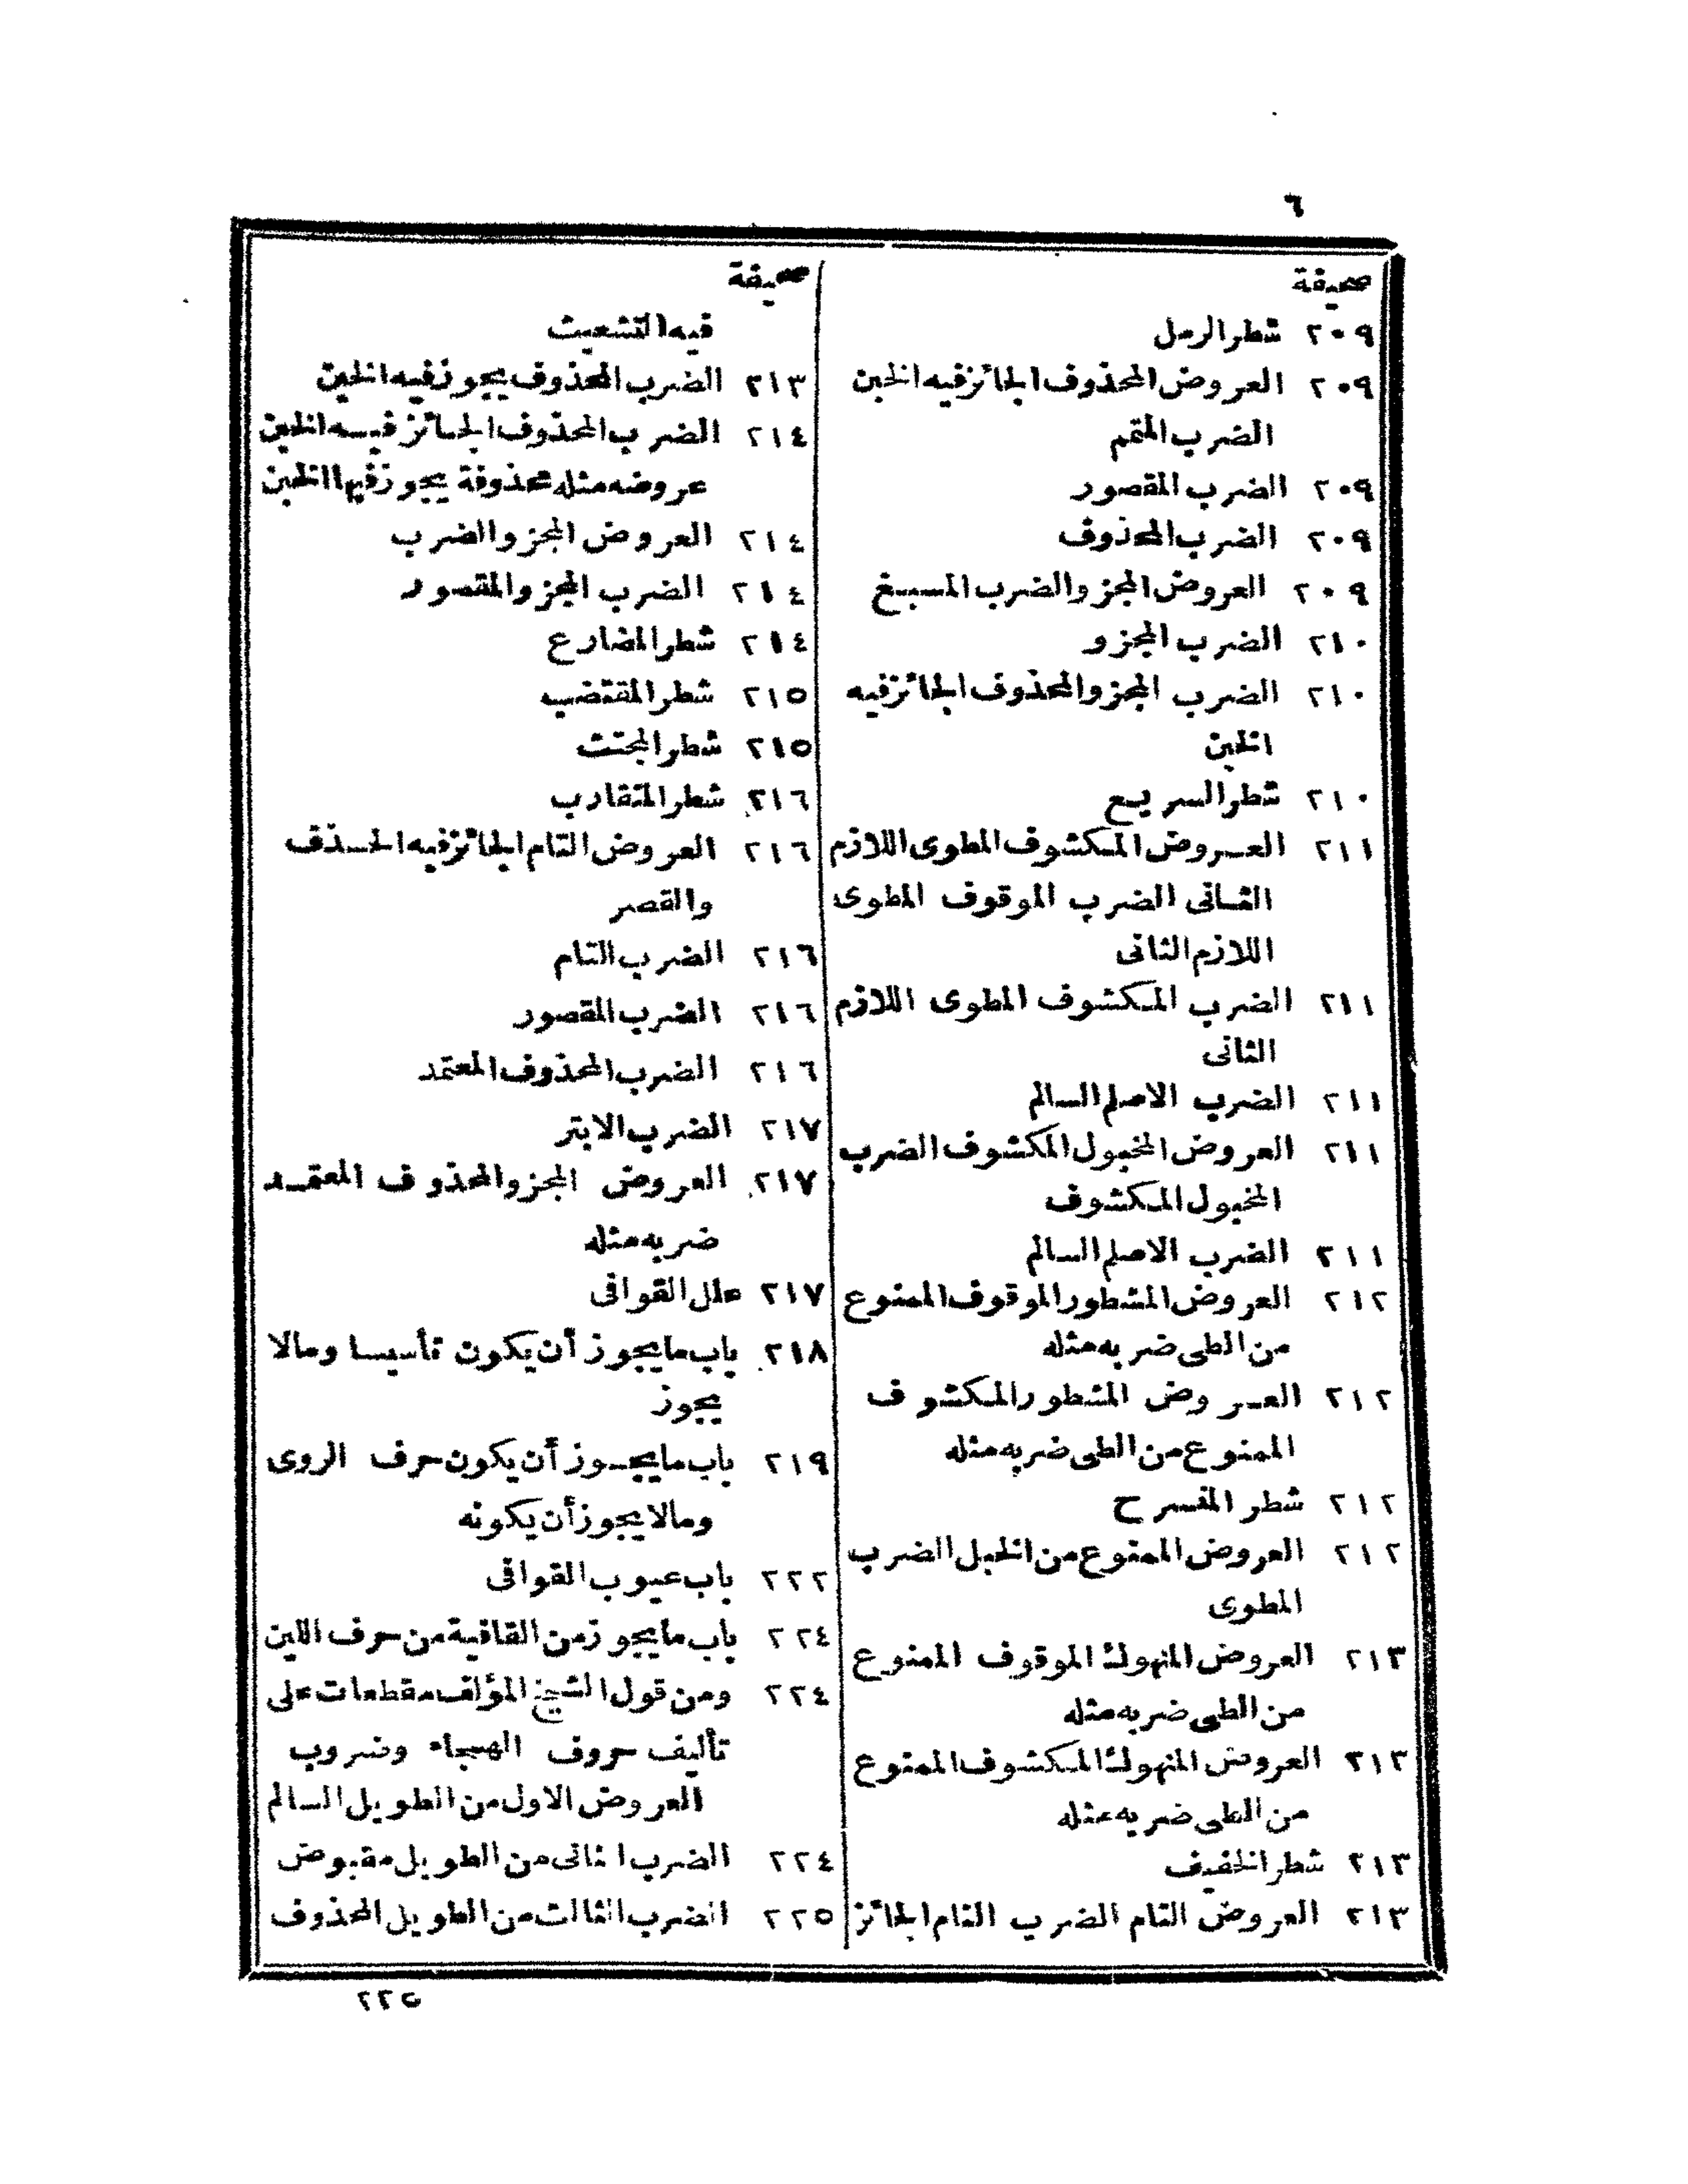 ٦
صحيفة
٢٠٩ شطر الرمل
٢٠٩ العروض المحذوف الجائز فيه الخبن
الضرب المتمم
٢٠٩ الضرب المقصور
٢٠٩ الضرب المحذوف
٢٠٩ العروض المجزو والضرب المسبغ
٢١٠ الضرب المجزو
٢١٠ الضرب المجزو المحذوف الجائز فيه
الخبن
٢١٠ شطر السريع
٢١١ العـروض المكشوف المطوى اللازم
الثـانى الضرب الموقوف المطوى
اللازم الثانى
٢١١ الضرب المكشوف المطوى اللازم
الثانى
٢١١ الضرب الاصلم السالم
٢١١ العروض المخبول المكشوف الضرب
المخبول المكشوف
٢١١ الضرب الاصلم السالم
٢١٢ العروض المشطور الموقوف الممنوع
من الطى ضربه مثله
٢١٢ العـروض المشطور المكشوف
الممنوع من الطى ضربه مثله
٢١٢ شطر المنسرح
٢١٢ العروض الممنوع من الخبل الضرب
المطوى
٢١٣ العروض المنهوك الموقوف الممنوع
من الطى ضربه مثله
٢١٣ العروض المنهوك المكشوف الممنوع
من الطى ضربه مثله
٢١٣ شطر الخفيف
٢١٣ العروض التام الضرب التام الجائز
صحيفة
فيه التشعيث
٢١٣ الضرب المحذوف يجوز فيه الخبن
٢١٤ الضرب المحذوف الجـائز فيـه الخبن
عروضه مثله محذوفة يجوز فيها الخبن
٢١٤ العروض المجزو الضرب
٢١٤ الضرب المجزو المقصور
٢١٤ شطر المضارع
٢١٥ شطر المقتضب
٢١٥ شطر المجتث
٢١٦ شطر المتقارب
٢١٦ العروض التام الجائز فيه الحـذف
والقصر
٢١٦ الضرب التام
٢١٦ الضرب المقصور
٢١٦ الضرب المحذوف المعتمد
٢١٧ الضرب الابتر
٢١٧ العروض المجزو المحذوف المعتمـد
ضربه مثله
٢١٧ علل القوافى
٢١٨ باب ما يجوز أن يكون تأسيسا ومالا
يجوز
٢١٩ باب ما يجـوز أن يكون حرف الروى
ومالا يجوز أن يكونه
٢٢٢ باب عيوب القوافى
٢٢٤ باب ما يجوز من القافية من حرف اللين
٢٢٤ ومن قول الشيخ المؤلف مقطعات على
تأليف حروف الهجاء وضروب
العروض الاول من الطويل السالم
٢٢٤ الضرب الثانى من الطويل مقبوض
٢٢٥ الضرب الثالث من الطويل المحذوف
٢٢٥